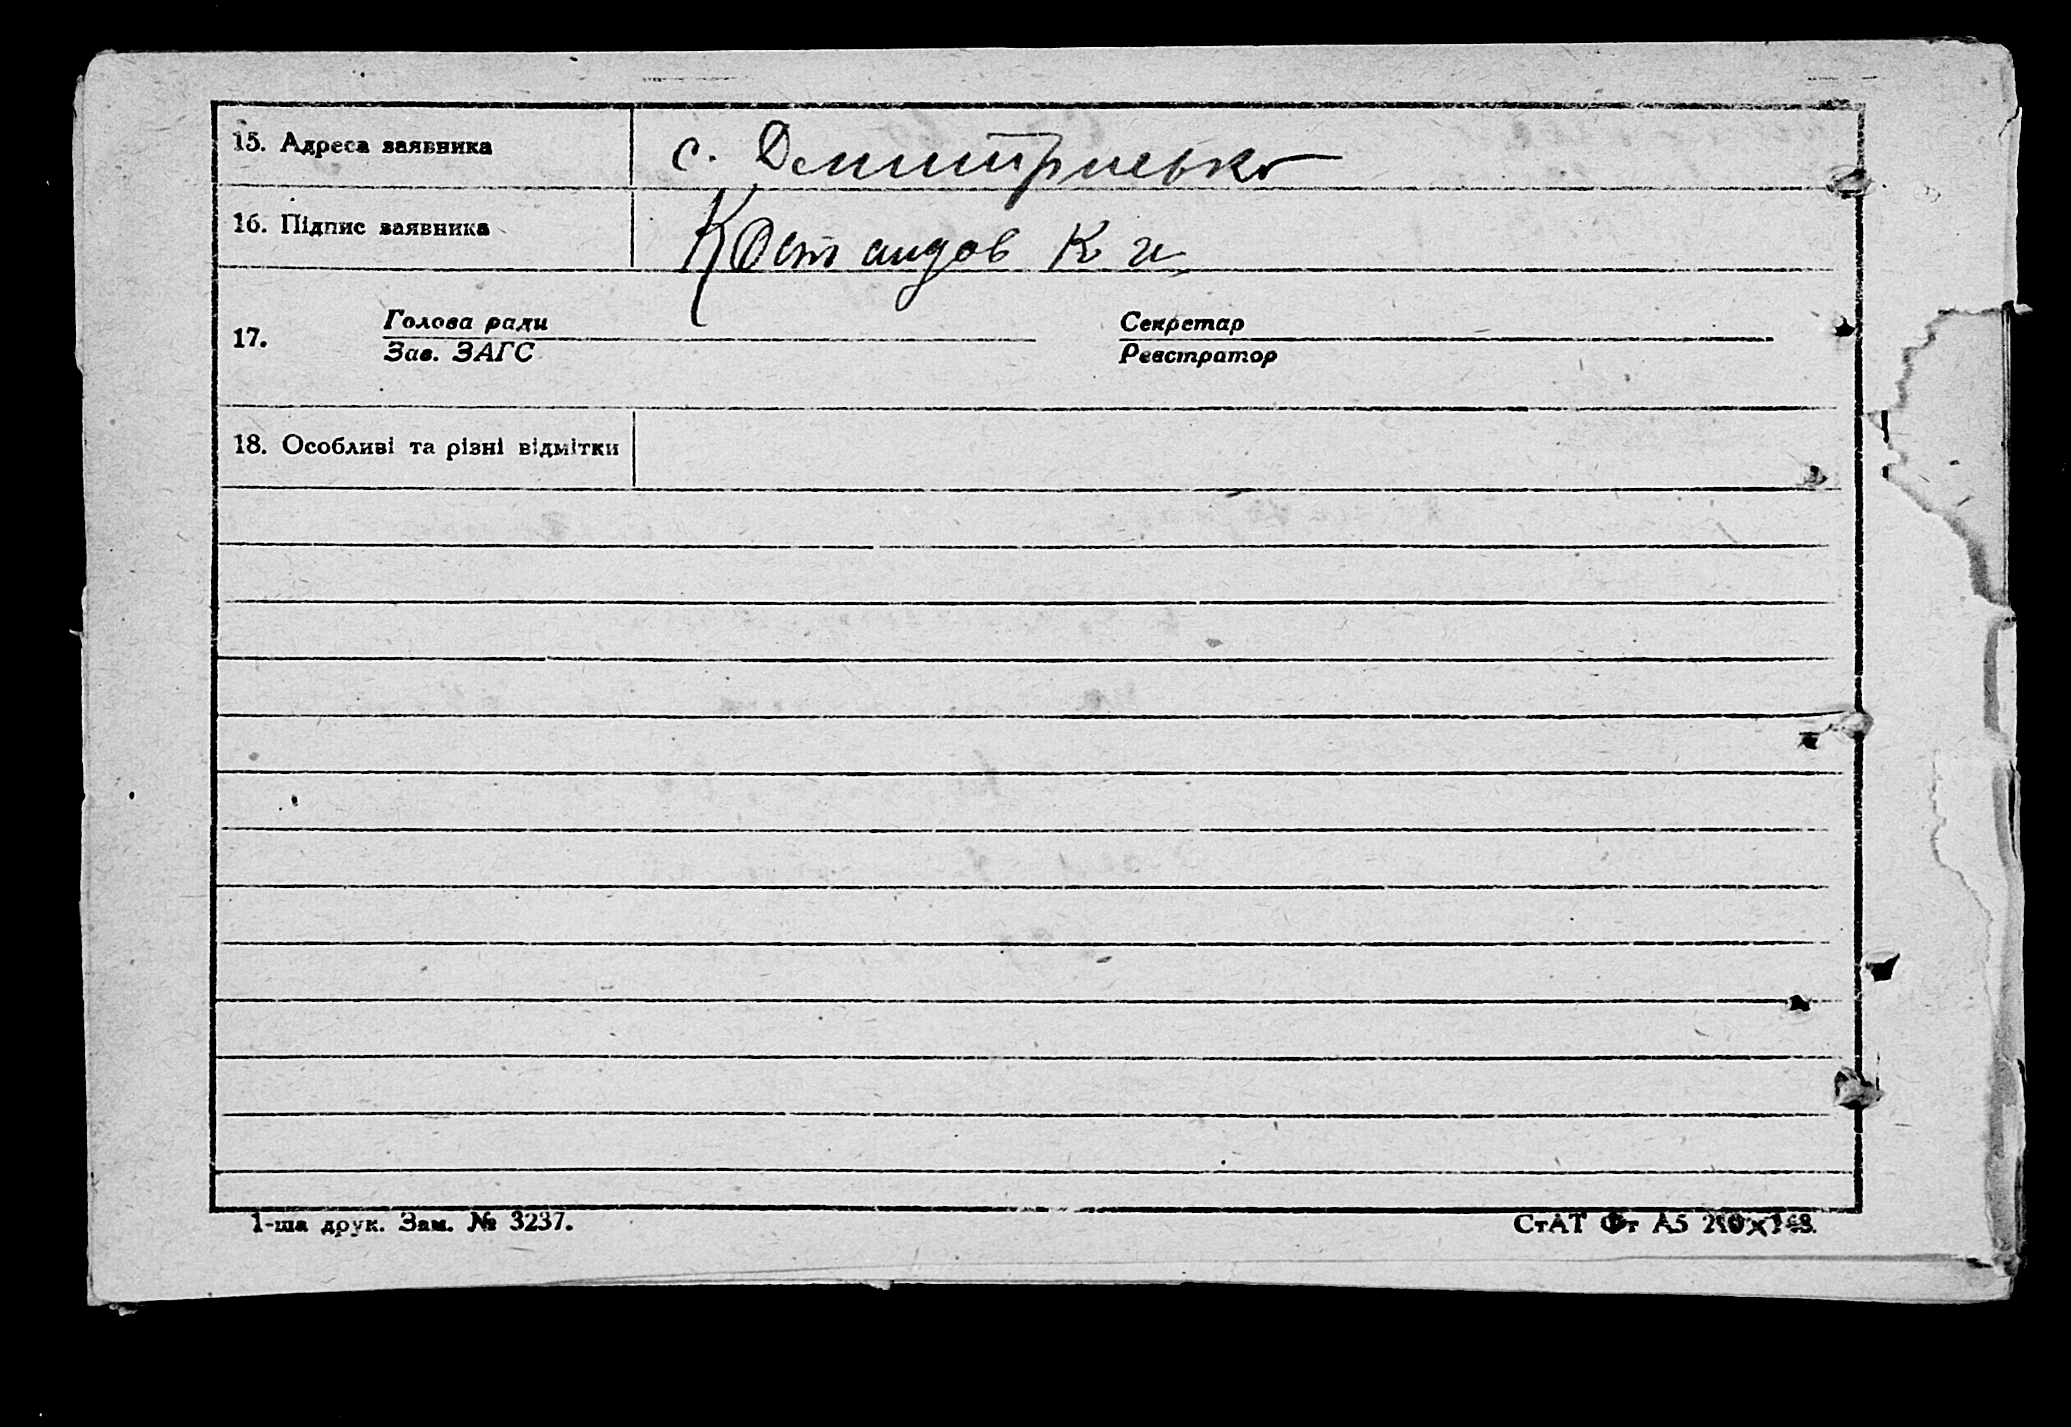 15. Адреса заявника
с. Дмитриевка
16. Підпис заявника
Костандов К и
17.
Голова ради
Зав. ЗАГС
Секретар
Реєстратор
18. Особливі та різні відмітки
1-ша друк. Зам. № 3237.
СтАТ Фт А5 210×148.